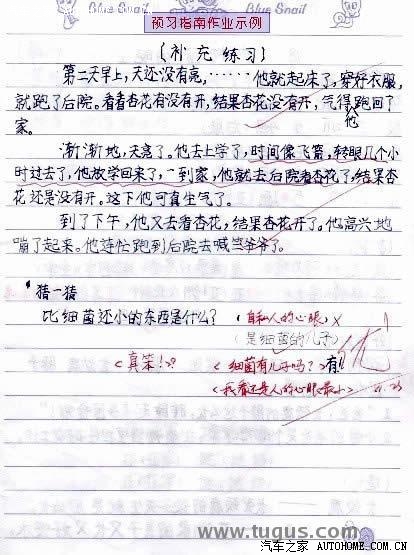 Blue Snail
Blue Snail
预习指南作业示例
(补充练习)
第二天早上,天还没有亮,……他就起床了,穿好衣服,
就跑了后院。看看杏花有没有开,结果杏花没有开,气得跑回了
他
家。
渐渐地,天亮了。他去上学了,时间像飞箭,转眼几个小
时过去了,他放学回来了,一到家,他就去后院看杏花了,结果杏
花还是没有开。这下他可真生气了。
到了下午,他又去看杏花,结果杏花开了。他高兴地
蹦了起来。他连忙跑到后院去喊爷爷了。
猜一猜
比细菌还小的东西是什么?(自私人的心眼)×
(是细菌的儿子)
优
<真笨!>? <细菌有儿子吗?>有!
<我看还是人的心眼最小>
www.tugus.com
汽车之家 AUTOHOME.COM.CN